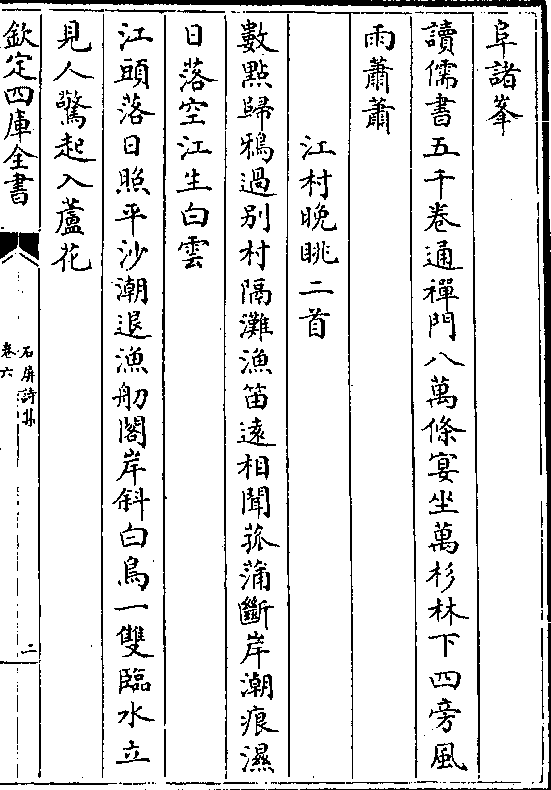 阜諸峯
讀儒書五千卷通禪門八萬條宴坐萬杉林下四旁風
雨蕭蕭
江村晩眺二首
數㸃歸鴉過別村隔灘漁笛遠相聞菰蒲斷岸潮痕濕
日落空江生白雲
江頭落日照平沙潮退漁舠閣岸斜白鳥一雙臨水立
見人驚起入蘆花
欽定四庫全書
石屏詩集
卷六
二